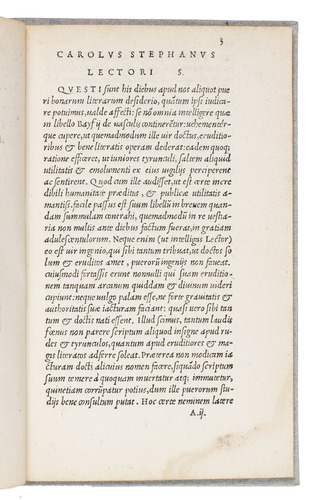 3
CAROLVS STEPHANVS
LECTORI S.
QVESTI sunt his diebus apud nos aliquot pue
ri bonarum literarum desiderio, quātum ipsi iudica-
re potuimus, ualde affecti: se nō omnia intelligere quæ
in libello Bayfij de uasculis continerētur: uehementér-
que cupere, ut quemadmodum ille uir doctus, eruditio-
ribus & bene literatis operam dederat: eadem quoq;
ratione efficeret, ut iuniores tyrunculi, saltem aliquid
utilitatis & emolumenti ex eius uigilijs perciperent
ac sentirent. Quod cum ille audisset, ut est certe incre
dibili humanitate præditus, & publicæ utilitatis a-
mantiss. facile passus est suum libellū in breuem quan-
dam summulam contrahi, quemadmodū in re uestia-
ria non multis ante diebus factum fuerat, in gratiam
adulescentulorum. Neque enim (ut intelligas Lector)
eo est uir ingenio, qui sibi tantum tribuat, ut doctos so
lum & eruditos amet, puerorū ingenijs non faueat.
cuiusmodi fortassis erunt nonnulli qui suam eruditio-
nem tanquam arcanum quiddam & diuinum uideri
cupiunt: neque uulgo palam esse, ne forte grauitatis &
authoritatis suæ iacturam faciant: quasi uero sibi tan
tum & doctis nati essent. Illud scimus, tantum laudis
fœnus non parere scriptum aliquod insigne apud ru-
des & tyrunculos, quantum apud eruditiores & ma-
gis literatos adferre soleat. Præterea non modicam ia-
cturam docti alicuius nomen facere, siquādo scriptum
suum temere à quoquam inuertatur atq; immutetur,
quinetiam corrūpatur potius, dum ille puerorum stu-
dijs bene consultum putat. Hoc certe neminem latere
A.ij.